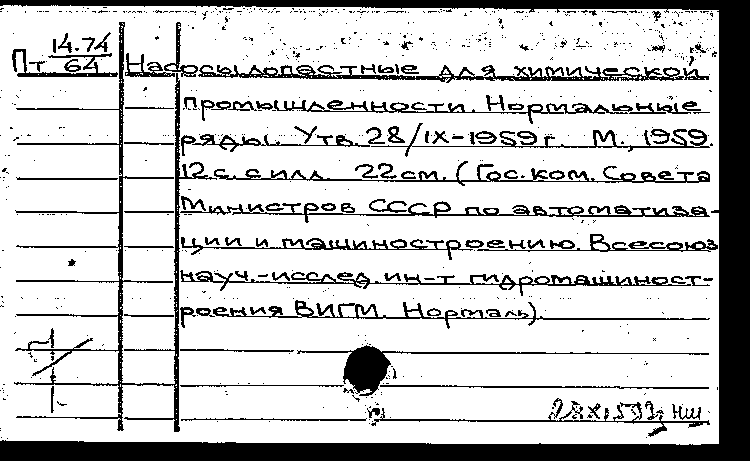 Пт 14.74/64 Насосы лопастные для химической
промышленности. Нормальные
ряды. Утв. 28/IX-1959г. М., 1959.
12 с. с илл. 22 см. (Гос. ком. Совета
Министров СССР по автоматиза-
ции и машиностроению. Всесоюз.
науч.-исслед. ин-т гидромашиност-
роения ВИГМ. Нормаль).